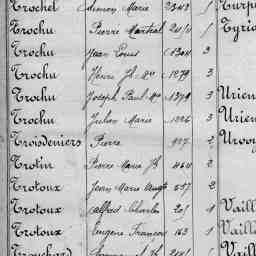 Trochet Simon Marie 2343 1 Turp
Trochu Pierre Martial 2411 1 Tyrio
Trochu Jean Louis 1304 3
Trochu Henri Jh Mie 1279 3
Trochu Joseph Paul Mie 1379 3 Urien
Trochu Julien Marie 1226 3 Urien
Troisdeniers Pierre 927 2 Urvoy
Trotin Pierre Marie Jh 464 2
Trotoux Jean Marie Aug 657 2
Trotoux Alfred Charles 201 1 Vaill
Trotoux Eugène François 163 1 Vaill
Trouchard Vaill